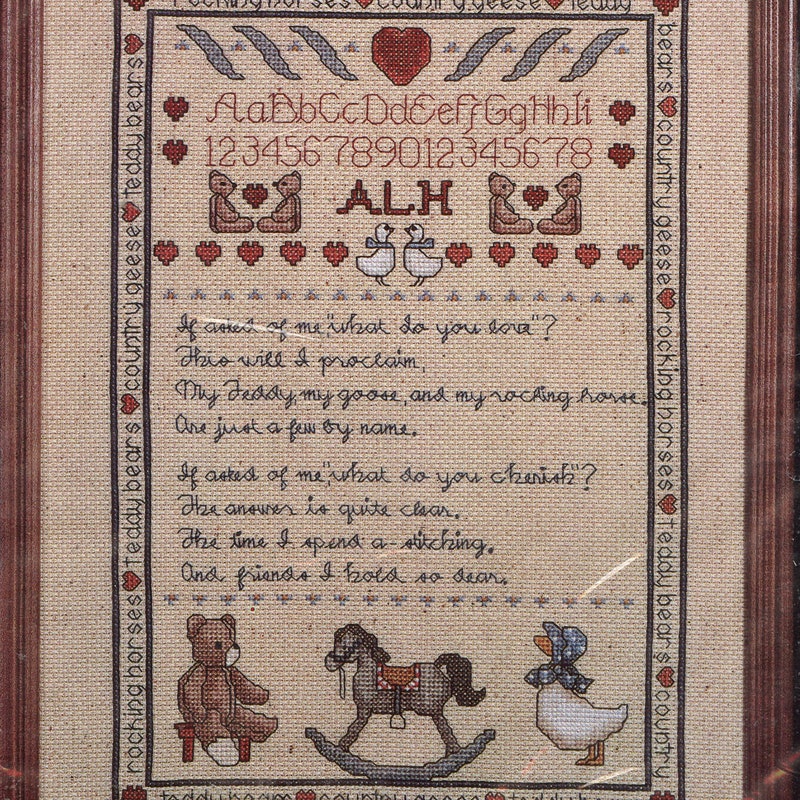 rocking horses country geese teddy
bears country geese rocking horses teddy bears country
AaBbCcDdEeFfGgHhIi
123456789012345678
ALH
If asked of me, "what do you love"?
This will I proclaim,
My Teddy, my goose, and my rocking horse.
Are just a few by name.
If asked of me, "what do you cherish"?
The answer is quite clear.
The time I spend a-stitching.
And friends I hold so dear.
rocking horses teddy bears country geese teddy bears
teddy bears country geese teddy